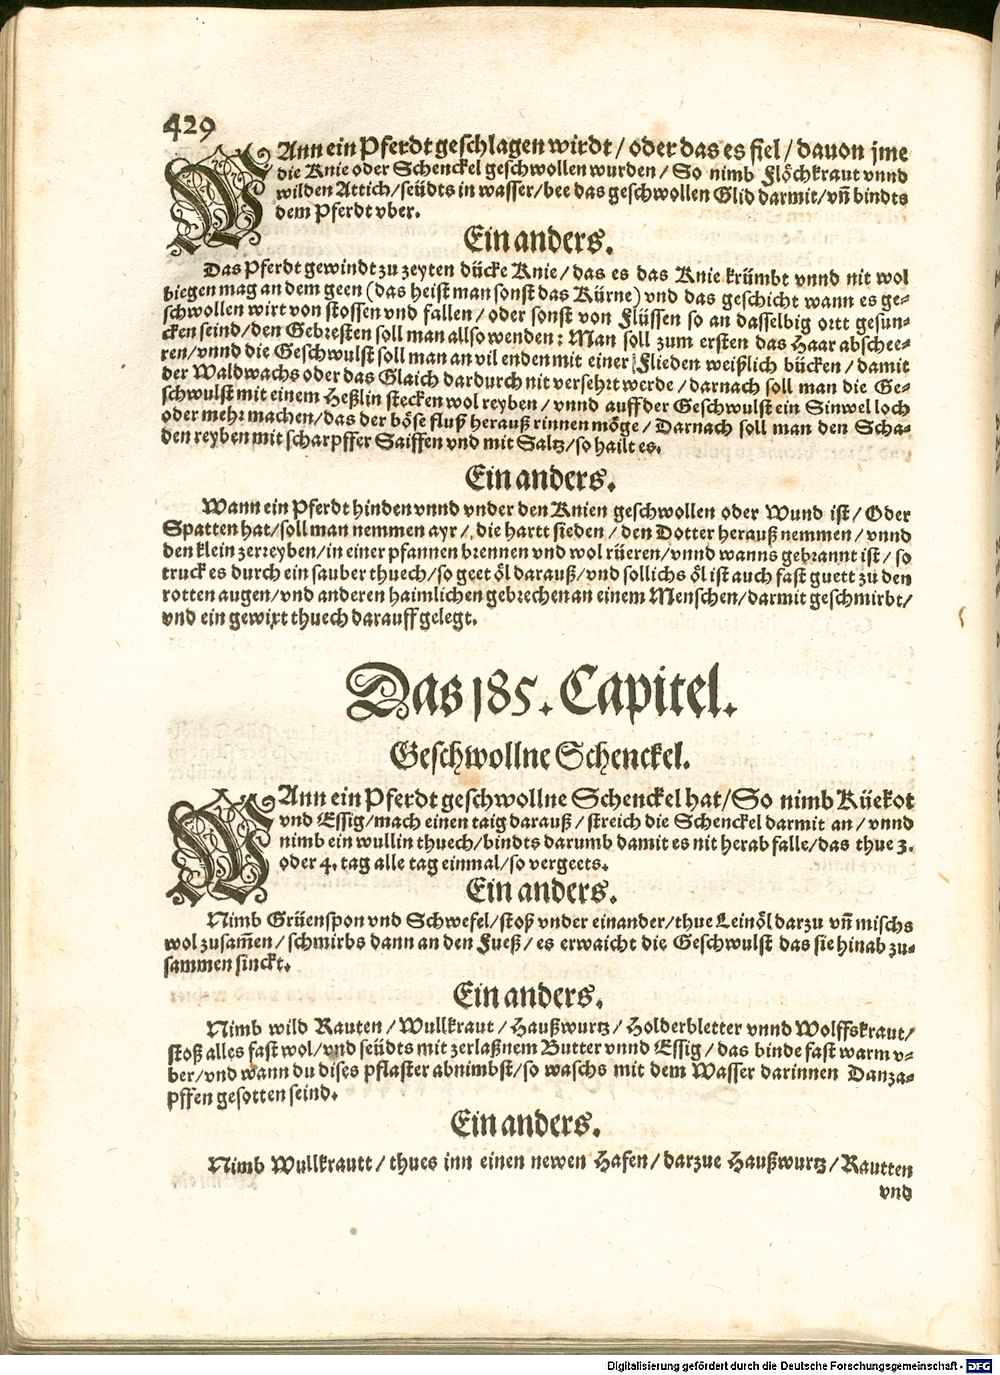 429
WAnn ein Pferdt geschlagen wirdt / oder das es fiel / dauon jme
die Knie oder Schenckel geschwollen wurden / So nimb Flöchkraut vnnd
wilden Attich / seüdts in wasser / bee das geschwollen Glid darmit / vn̄ bindts
dem Pferdt vber.
Ein anders.
Das Pferdt gewindt zu zeyten dücke Knie / das es das Knie krümbt vnnd nit wol
biegen mag an dem geen (das heist man sonst das Kürne) vnd das geschicht wann es ge-
schwollen wirt von stossen vnd fallen / oder sonst von Flüssen so an dasselbig ortt gesun-
cken seind / den Gebresten soll man allso wenden: Man soll zum ersten das Haar abschee-
ren / vnnd die Geschwulst soll man an vil enden mit einer Flieden weißlich bücken / damit
der Waldwachs oder das Glaich dardurch nit versehrt werde / darnach soll man die Ge-
schwulst mit einem Heßlin stecken wol reyben / vnnd auff der Geschwulst ein Sinwel loch
oder mehr machen / das der böse fluß herauß rinnen möge / Darnach soll man den Scha-
den reyben mit scharpffer Saiffen vnd mit Saltz / so hailt es.
Ein anders.
Wann ein Pferdt hinden vnnd vnder den Knien geschwollen oder Wund ist / Oder
Spatten hat / soll man nemmen ayr / die hartt sieden / den Dotter herauß nemmen / vnnd
den klein zerreyben / in einer pfannen brennen vnd wol rüeren / vnnd wanns gebrannt ist / so
truck es durch ein sauber thuech / so geet öl darauß / vnd sollichs öl ist auch fast guett zu den
rotten augen / vnd anderen haimlichen gebrechen an einem Menschen / darmit geschmirbt /
vnd ein gewixt thuech darauff gelegt.
Das 185. Capitel.
Geschwollne Schenckel.
WAnn ein Pferdt geschwollne Schenckel hat / So nimb Küekot
vnd Essig / mach einen taig darauß / streich die Schenckel darmit an / vnnd
nimb ein wullin thuech / bindts darumb damit es nit herab falle / das thue 3.
oder 4. tag alle tag einmal / so vergeets.
Ein anders.
Nimb Grüenspon vnd Schwefel / stoß vnder einander / thue Leinöl darzu vn̄ mischs
wol zusam̄en / schmirbs dann an den Fueß / es erwaicht die Geschwulst das sie hinab zu-
sammen sinckt.
Ein anders.
Nimb wild Rauten / Wullkraut / Haußwurtz / Holderbletter vnnd Wolffskraut /
stoß alles fast wol / vnd seüdts mit zerlaßnem Butter vnnd Essig / das binde fast warm v-
ber / vnd wann du dises pflaster abnimbst / so waschs mit dem Wasser darinnen Danza-
pffen gesotten seind.
Ein anders.
Nimb Wullkrautt / thues inn einen newen Hafen / darzue Haußwurtz / Rautten
vnd
Digitalisierung gefördert durch die Deutsche Forschungsgemeinschaft - DFG